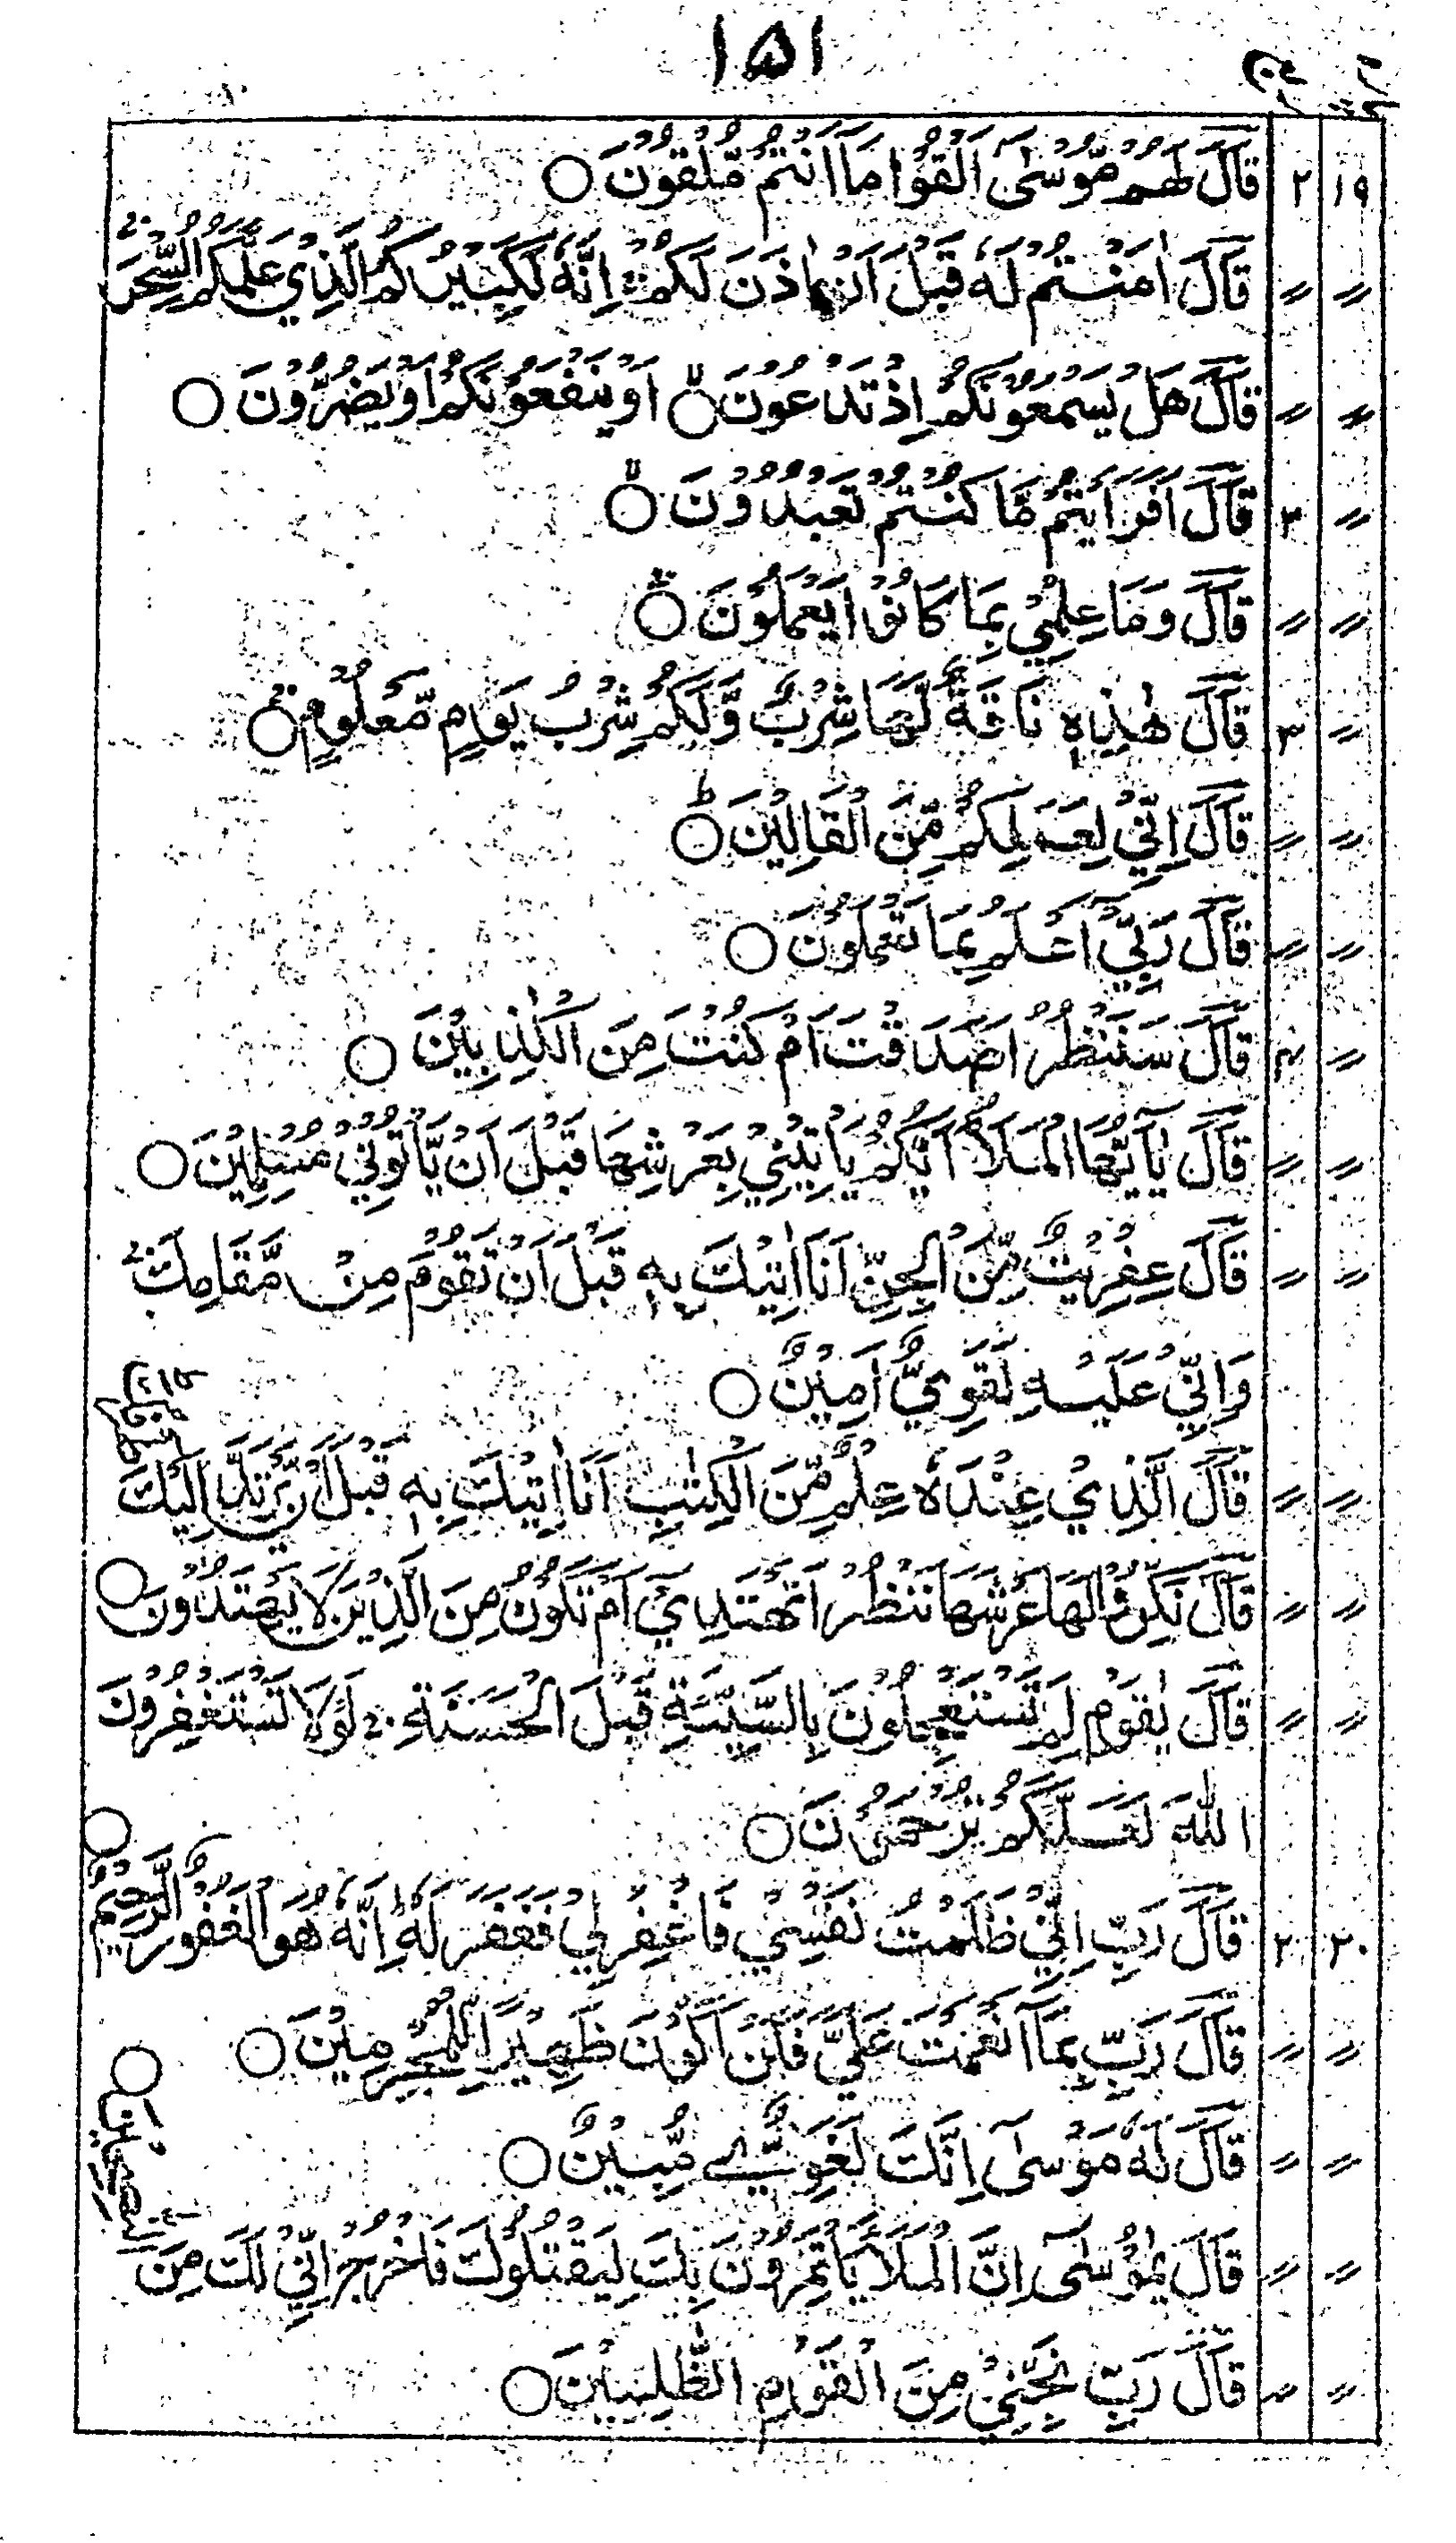 ۱۵۱
۱۹ ۲ قَالَ لَهُمْ مُّوْسٰى اَلْقُوْا مَا اَنْتُمْ مُّلْقُوْنَ ○
〃 〃 قَالَ اٰمَنْتُمْ لَهٗ قَبْلَ اَنْ اٰذَنَ لَكُمْ ۚ اِنَّهٗ لَكَبِيْرُكُمُ الَّذِيْ عَلَّمَكُمُ السِّحْرَ ۚ
〃 〃 قَالَ هَلْ يَسْمَعُوْنَكُمْ اِذْ تَدْعُوْنَ ○ۙ اَوْ يَنْفَعُوْنَكُمْ اَوْ يَضُرُّوْنَ ○
〃 ۳ قَالَ اَفَرَاَيْتُمْ مَّا كُنْتُمْ تَعْبُدُوْنَ ○ۙ
〃 〃 قَالَ وَمَا عِلْمِيْ بِمَا كَانُوْا يَعْمَلُوْنَ ○ۚ
〃 ۳ قَالَ هٰذِهٖ نَاقَةٌ لَّهَا شِرْبٌ وَّلَكُمْ شِرْبُ يَوْمٍ مَّعْلُوْمٍ ○ۚ
〃 〃 قَالَ اِنِّيْ لِعَمَلِكُمْ مِّنَ الْقَالِيْنَ ○ؕ
〃 〃 قَالَ رَبِّيْٓ اَعْلَمُ بِمَا تَعْمَلُوْنَ ○
〃 ۴ قَالَ سَنَنْظُرُ اَصَدَقْتَ اَمْ كُنْتَ مِنَ الْكٰذِبِيْنَ ○
〃 〃 قَالَ يٰٓاَيُّهَا الْمَلَؤُا اَيُّكُمْ يَاْتِيْنِيْ بِعَرْشِهَا قَبْلَ اَنْ يَّاْتُوْنِيْ مُسْلِمِيْنَ ○
〃 〃 قَالَ عِفْرِيْتٌ مِّنَ الْجِنِّ اَنَا اٰتِيْكَ بِهٖ قَبْلَ اَنْ تَقُوْمَ مِنْ مَّقَامِكَ ۚ
وَاِنِّيْ عَلَيْهِ لَقَوِيٌّ اَمِيْنٌ ○
〃 〃 قَالَ الَّذِيْ عِنْدَهٗ عِلْمٌ مِّنَ الْكِتٰبِ اَنَا اٰتِيْكَ بِهٖ قَبْلَ اَنْ يَّرْتَدَّ اِلَيْكَ
〃 〃 قَالَ نَكِّرُوْا لَهَا عَرْشَهَا نَنْظُرْ اَتَهْتَدِيْٓ اَمْ تَكُوْنُ مِنَ الَّذِيْنَ لَا يَهْتَدُوْنَ ○
〃 〃 قَالَ يٰقَوْمِ لِمَ تَسْتَعْجِلُوْنَ بِالسَّيِّئَةِ قَبْلَ الْحَسَنَةِ ۚ لَوْلَا تَسْتَغْفِرُوْنَ
اللّٰهَ لَعَلَّكُمْ تُرْحَمُوْنَ ○
۲۰ ۲ قَالَ رَبِّ اِنِّيْ ظَلَمْتُ نَفْسِيْ فَاغْفِرْ لِيْ فَغَفَرَ لَهٗ ؕ اِنَّهٗ هُوَ الْغَفُوْرُ الرَّحِيْمُ ○
〃 〃 قَالَ رَبِّ بِمَآ اَنْعَمْتَ عَلَيَّ فَلَنْ اَكُوْنَ ظَهِيْرًا لِّلْمُجْرِمِيْنَ ○
〃 〃 قَالَ لَهٗ مُوْسٰٓى اِنَّكَ لَغَوِيٌّ مُّبِيْنٌ ○
〃 〃 قَالَ يٰمُوْسٰٓى اِنَّ الْمَلَاَ يَاْتَمِرُوْنَ بِكَ لِيَقْتُلُوْكَ فَاخْرُجْ اِنِّيْ لَكَ مِنَ النّٰصِحِيْنَ ○
〃 〃 قَالَ رَبِّ نَجِّنِيْ مِنَ الْقَوْمِ الظّٰلِمِيْنَ ○